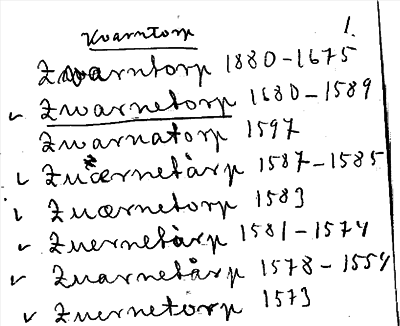 Kvarntorp 1.
Zwarntorp 1880-1675
Zwarnetorp 1680-1589
Zwarnatorp 1597
Zuærnetårp 1587-1585
Zuærnetorp 1583
Zuernetårp 1581-1574
Zuarnetårp 1578-1554
Zuernetorp 1573